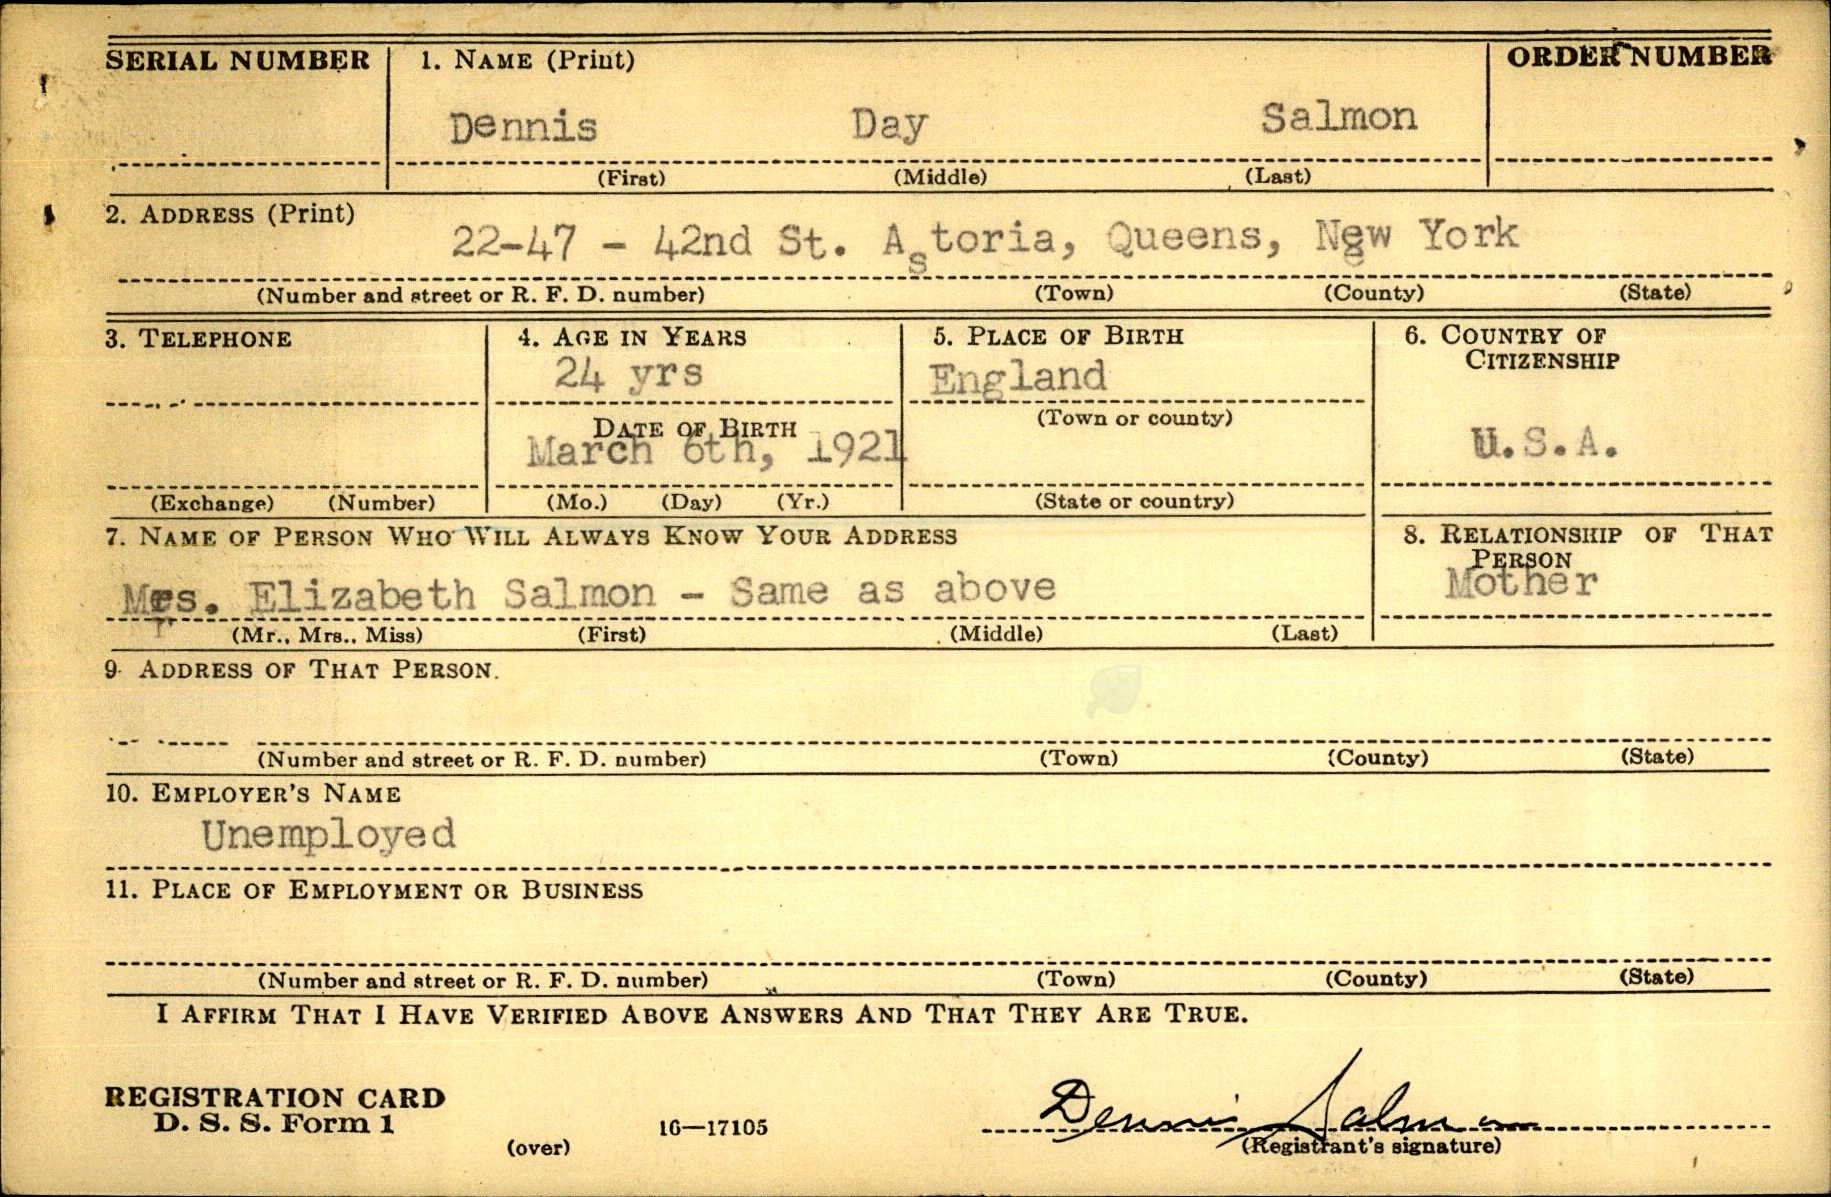 SERIAL NUMBER 1. NAME (Print) ORDER NUMBER
Dennis Day Salmon
(First) (Middle) (Last)
2. ADDRESS (Print)
22-47 - 42nd St. Astoria, Queens, New York
(Number and street or R. F. D. number) (Town) (County) (State)
3. TELEPHONE 4. AGE IN YEARS 5. PLACE OF BIRTH 6. COUNTRY OF
CITIZENSHIP
24 yrs England
DATE OF BIRTH (Town or county)
March 6th, 1921 U.S.A.
(Exchange) (Number) (Mo.) (Day) (Yr.) (State or country)
7. NAME OF PERSON WHO WILL ALWAYS KNOW YOUR ADDRESS 8. RELATIONSHIP OF THAT
PERSON
Mrs. Elizabeth Salmon - Same as above Mother
(Mr., Mrs., Miss) (First) (Middle) (Last)
9. ADDRESS OF THAT PERSON.
(Number and street or R. F. D. number) (Town) (County) (State)
10. EMPLOYER'S NAME
Unemployed
11. PLACE OF EMPLOYMENT OR BUSINESS
(Number and street or R. F. D. number) (Town) (County) (State)
I AFFIRM THAT I HAVE VERIFIED ABOVE ANSWERS AND THAT THEY ARE TRUE.
REGISTRATION CARD
D. S. S. Form 1 16—17105 Dennis Salmon
(over) (Registrant's signature)